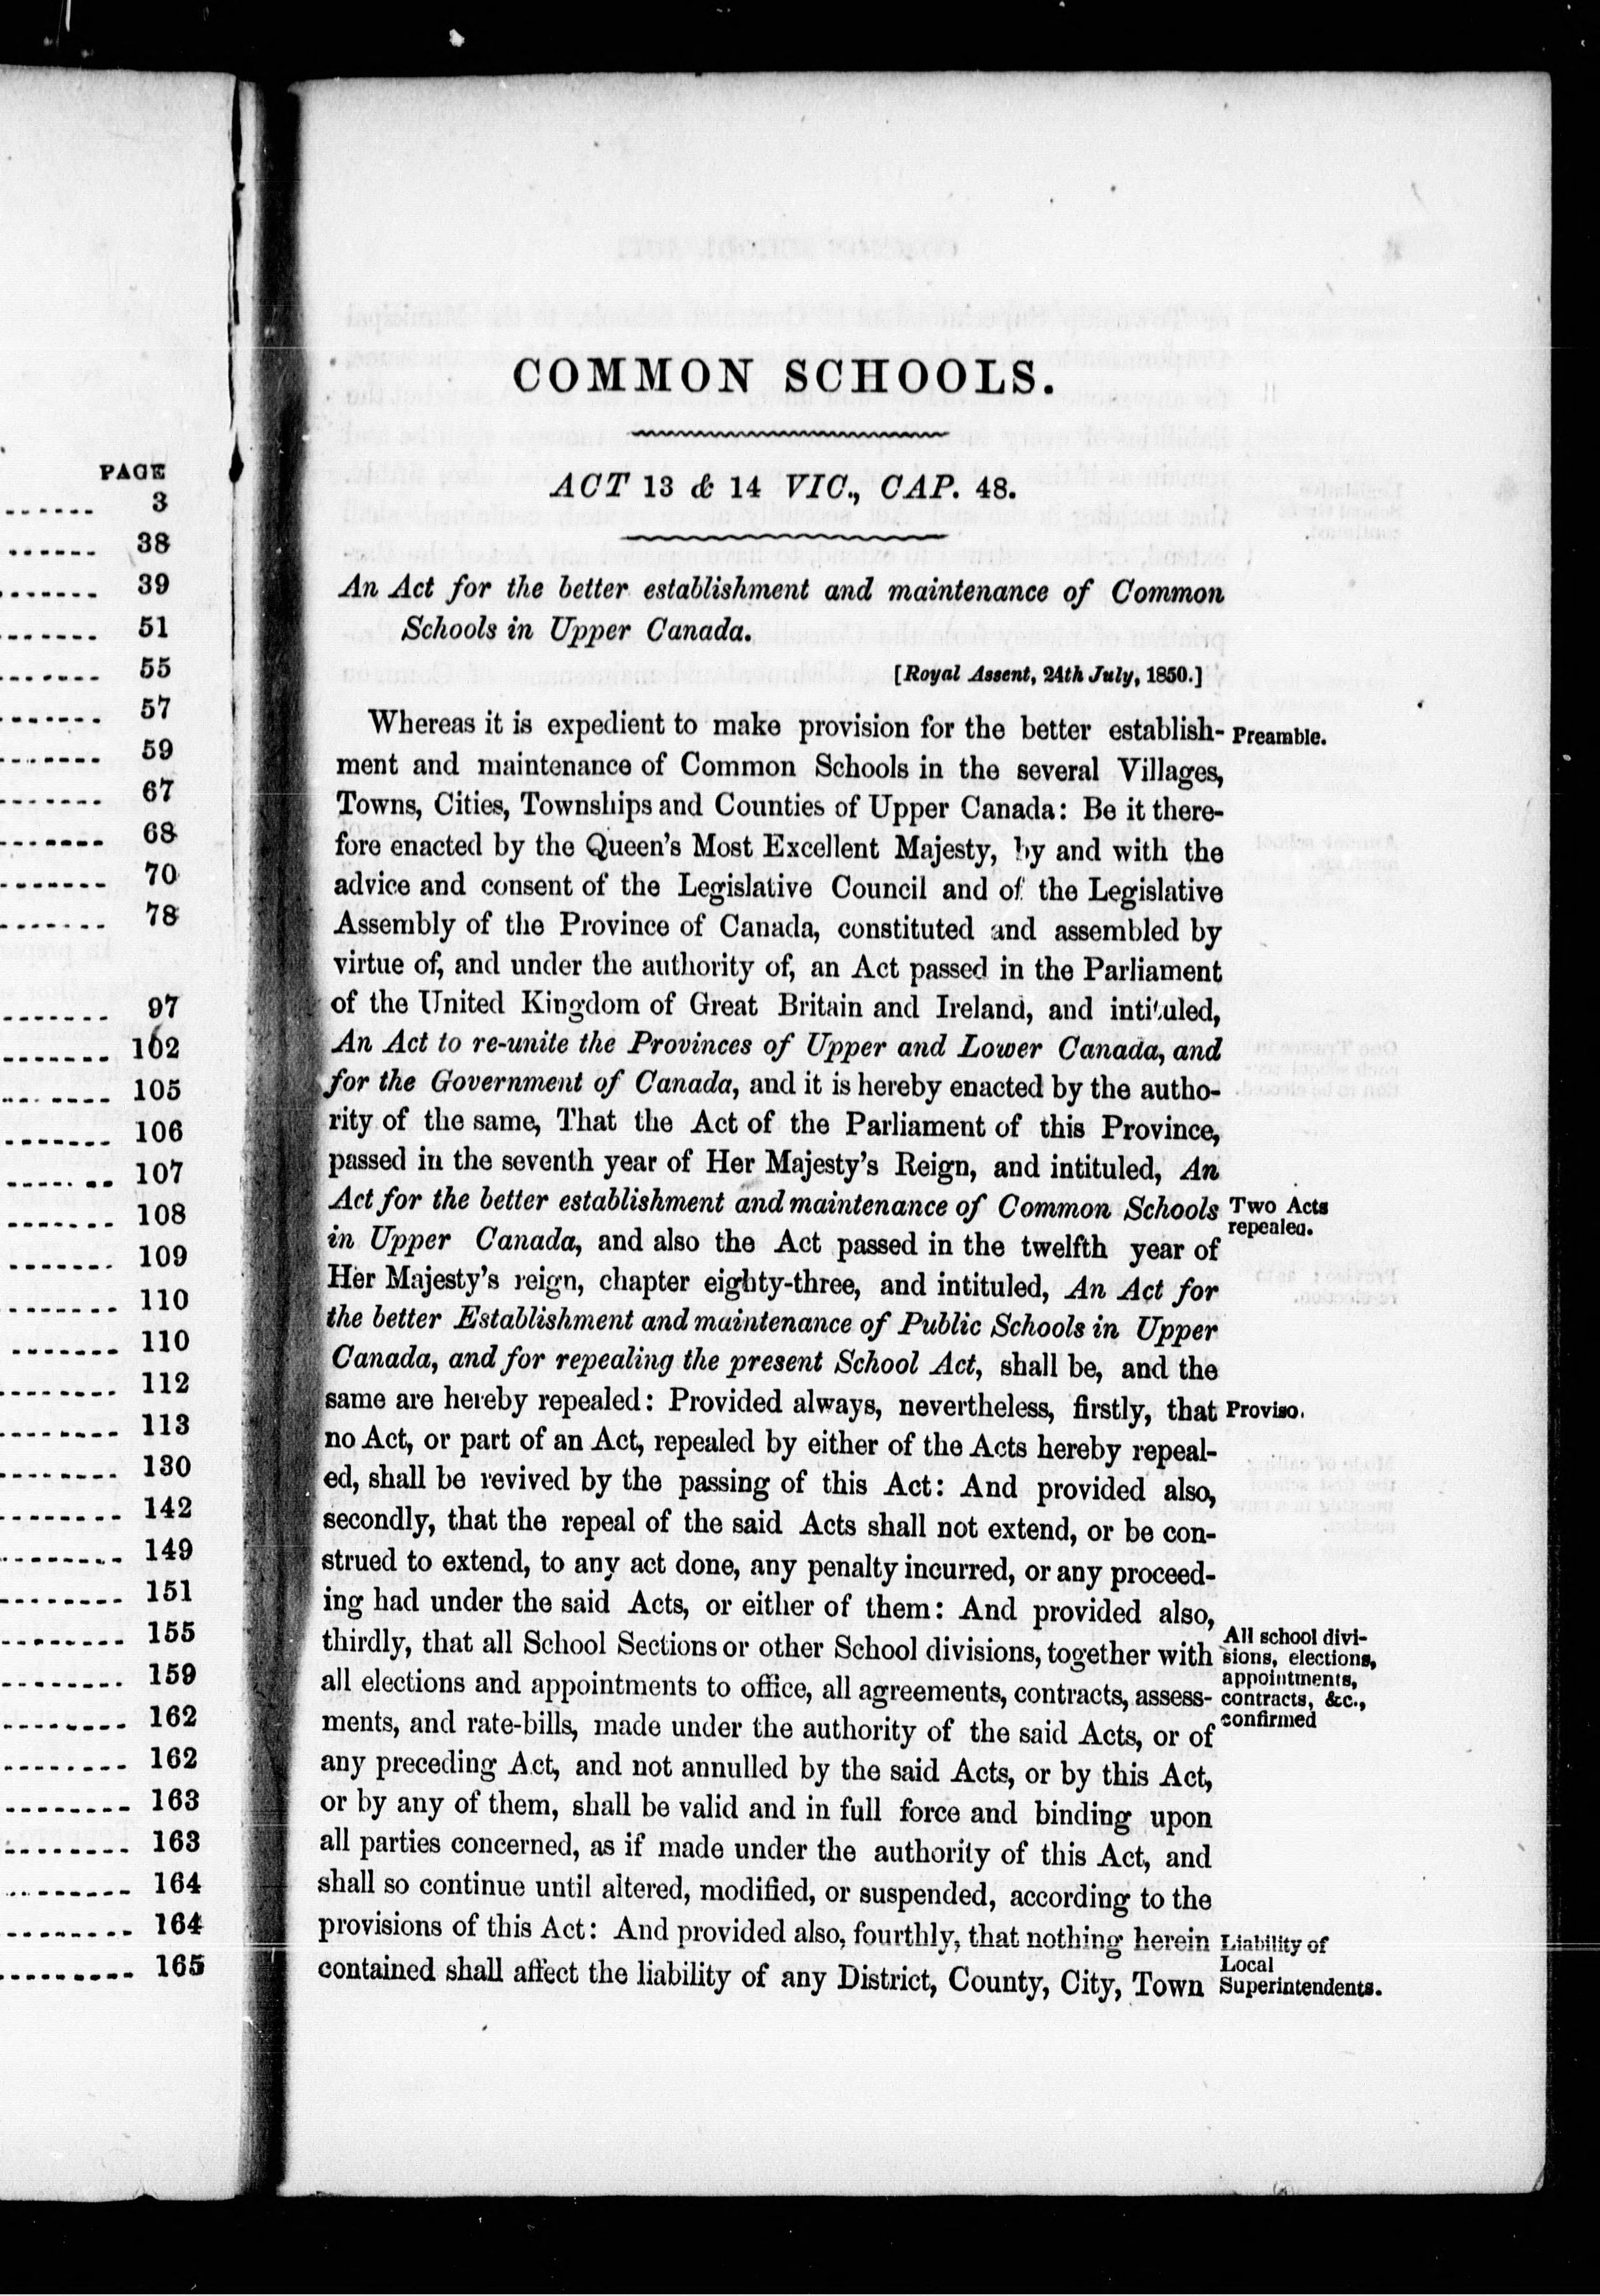 PAGE
3
38
39
51
55
57
59
67
68
70
78
97
102
105
106
107
108
109
110
110
112
113
130
142
149
151
155
159
162
162
163
163
164
164
165
COMMON SCHOOLS.
ACT 13 & 14 VIC., CAP. 48.
An Act for the better establishment and maintenance of Common
Schools in Upper Canada.
[Royal Assent, 24th July, 1850.]
Whereas it is expedient to make provision for the better establish-
ment and maintenance of Common Schools in the several Villages,
Towns, Cities, Townships and Counties of Upper Canada: Be it there-
fore enacted by the Queen's Most Excellent Majesty, by and with the
advice and consent of the Legislative Council and of the Legislative
Assembly of the Province of Canada, constituted and assembled by
virtue of, and under the authority of, an Act passed in the Parliament
of the United Kingdom of Great Britain and Ireland, and intituled,
An Act to re-unite the Provinces of Upper and Lower Canada, and
for the Government of Canada, and it is hereby enacted by the autho-
rity of the same, That the Act of the Parliament of this Province,
passed in the seventh year of Her Majesty's Reign, and intituled, An
Act for the better establishment and maintenance of Common Schools
in Upper Canada, and also the Act passed in the twelfth year of
Her Majesty's reign, chapter eighty-three, and intituled, An Act for
the better Establishment and maintenance of Public Schools in Upper
Canada, and for repealing the present School Act, shall be, and the
same are hereby repealed: Provided always, nevertheless, firstly, that
no Act, or part of an Act, repealed by either of the Acts hereby repeal-
ed, shall be revived by the passing of this Act: And provided also,
secondly, that the repeal of the said Acts shall not extend, or be con-
strued to extend, to any act done, any penalty incurred, or any proceed-
ing had under the said Acts, or either of them: And provided also,
thirdly, that all School Sections or other School divisions, together with
all elections and appointments to office, all agreements, contracts, assess-
ments, and rate-bills, made under the authority of the said Acts, or of
any preceding Act, and not annulled by the said Acts, or by this Act,
or by any of them, shall be valid and in full force and binding upon
all parties concerned, as if made under the authority of this Act, and
shall so continue until altered, modified, or suspended, according to the
provisions of this Act: And provided also, fourthly, that nothing herein
contained shall affect the liability of any District, County, City, Town
Preamble.
Two Acts
repealed.
Proviso.
All school divi-
sions, elections,
appointments,
contracts, &c.,
confirmed
Liability of
Local
Superintendents.